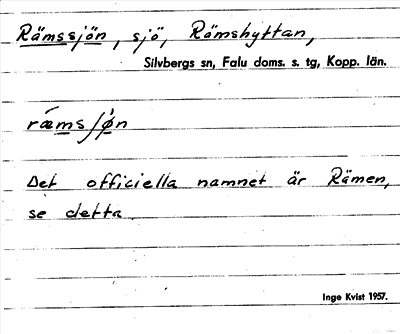 Rämssjön, sjö, Rämshyttan,
Silvbergs sn, Falu doms. s. tg, Kopp. län.
rǽmsʃø̀n
Det officiella namnet är Rämen,
se detta.
Inge Kvist 1957.